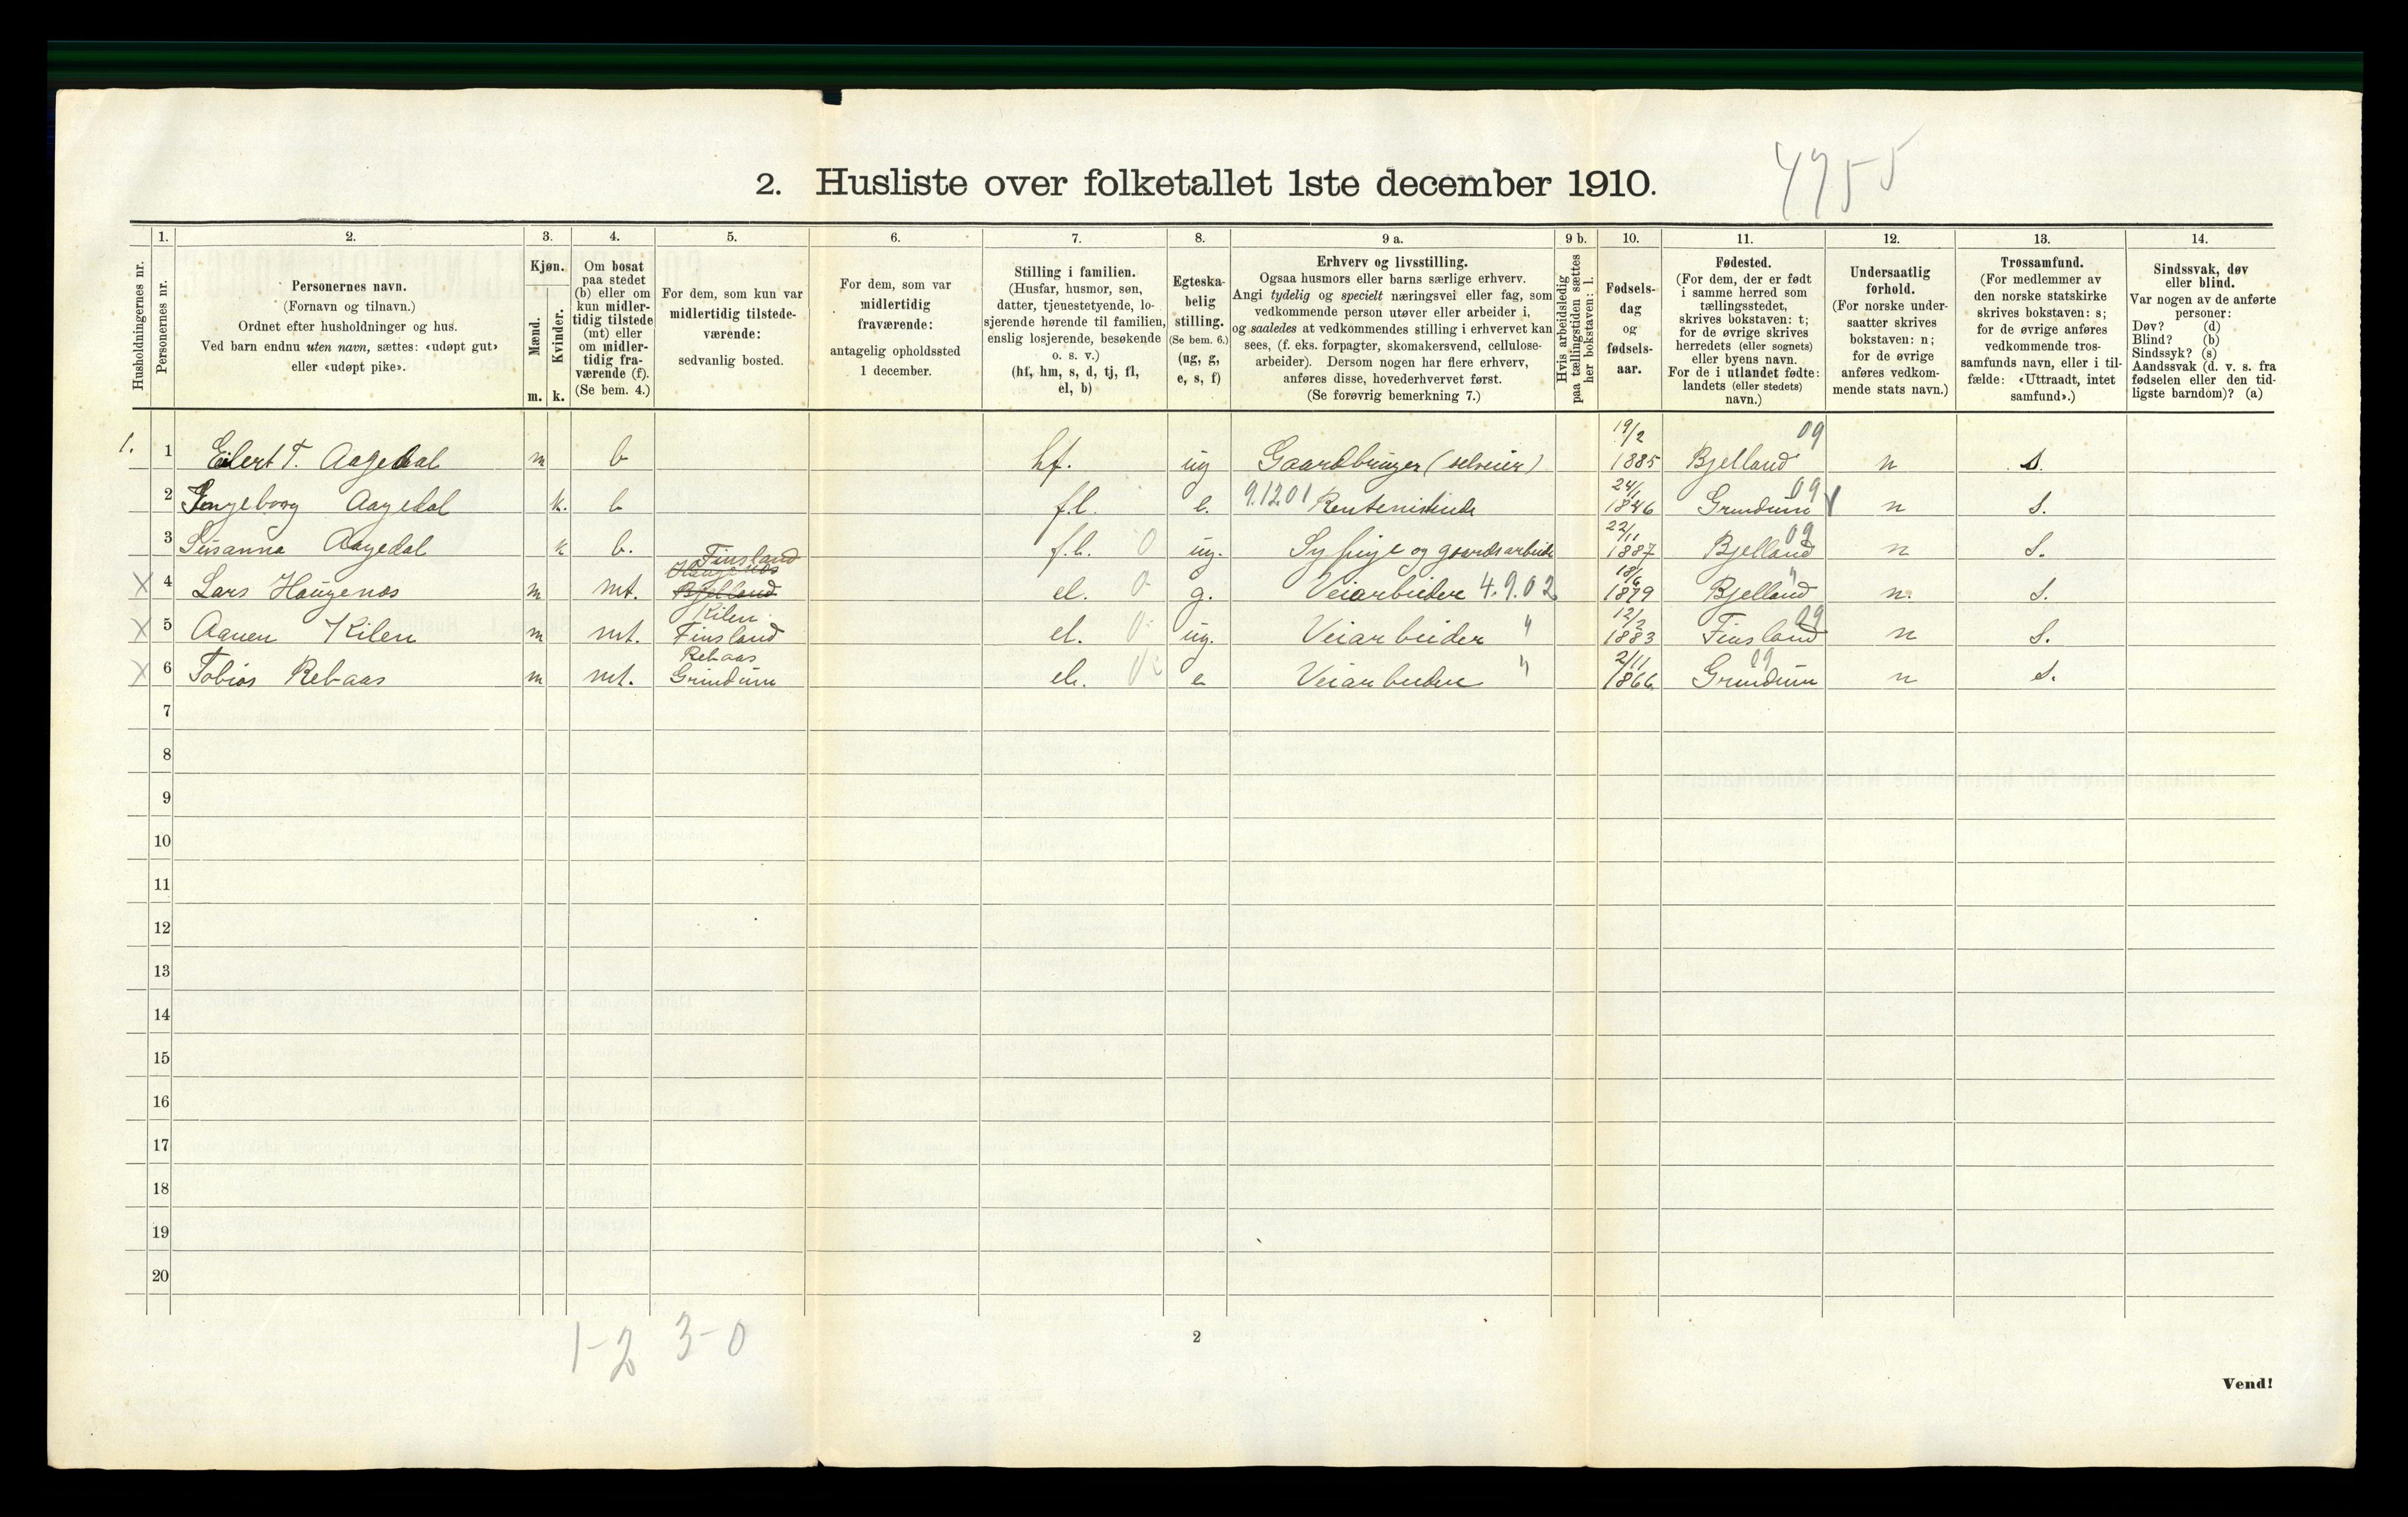 4755
2. Husliste over folketallet 1ste december 1910.
Husholdningernes nr.
1.
Personernes nr.
2.
Personernes navn.
(Fornavn og tilnavn.)
Ordnet efter husholdninger og hus.
Ved barn endnu uten navn, sættes: «udøpt gut»
eller «udøpt pike».
3.
Kjøn.
Mænd.
Kvinder.
m. k.
4.
Om bosat
paa stedet
(b) eller om
kun midler-
tidig tilstede
(mt) eller
om midler-
tidig fra-
værende (f).
(Se bem. 4.)
5.
For dem, som kun var
midlertidig tilstede-
værende:
sedvanlig bosted.
6.
For dem, som var
midlertidig
fraværende:
antagelig opholdssted
1 december.
7.
Stilling i familien.
(Husfar, husmor, søn,
datter, tjenestetyende, lo-
sjerende hørende til familien,
enslig losjerende, besøkende
o. s. v.)
(hf, hm, s, d, tj, fl,
el, b)
8.
Egteska-
belig
stilling.
(Se bem. 6.)
(ug, g,
e, s, f)
9 a.
Erhverv og livsstilling.
Ogsaa husmors eller barns særlige erhverv.
Angi tydelig og specielt næringsvei eller fag, som
vedkommende person utøver eller arbeider i,
og saaledes at vedkommendes stilling i erhvervet kan
sees, (f. eks. forpagter, skomakersvend, cellulose-
arbeider). Dersom nogen har flere erhverv,
anføres disse, hovederhvervet først.
(Se forøvrig bemerkning 7.)
9 b.
Hvis arbeidsledig
paa tællingstiden sættes
her bokstaven: l.
10.
Fødsels-
dag
og
fødsels-
aar.
11.
Fødested.
(For dem, der er født
i samme herred som
tællingsstedet,
skrives bokstaven: t;
for de øvrige skrives
herredets (eller sognets)
eller byens navn.
For de i utlandet fødte:
landets (eller stedets)
navn.)
12.
Undersaatlig
forhold.
(For norske under-
saatter skrives
bokstaven: n;
for de øvrige
anføres vedkom-
mende stats navn.)
13.
Trossamfund.
(For medlemmer av
den norske statskirke
skrives bokstaven: s;
for de øvrige anføres
vedkommende tros-
samfunds navn, eller i til-
fælde: «Uttraadt, intet
samfund».)
14.
Sindssvak, døv
eller blind.
Var nogen av de anførte
personer:
Døv? (d)
Blind? (b)
Sindssyk? (s)
Aandssvak (d. v. s. fra
fødselen eller den tid-
ligste barndom)? (a)
1. 1 Eilert T. Aagedal m b hf. ug Gaardbruger (selveier) 19/2 1885 Bjelland 09 n s.
2 Ingeborg Aagedal k. b f.l. e. 9.1201 Rentenistinde 24/1 1846 Grindum 09 n s.
3 Susanna Aagedal k b. f.l. 0 ug. Sypige og gaardsarbeide 22/11 1887 Bjelland 09 n s.
X 4 Lars Haugenos m mt. Finsland Haugenos Bjelland el. 0 g. Veiarbeider 4.9.02 18/6 1879 Bjelland " n. s.
X 5 Aanen Kilen m mt. Kilen Finsland el. 0 ug. Veiarbeider " 12/2 1883 Finsland 09 n s.
X 6 Tobias Rebaas m mt. Rebaas Grindum el. e Veiarbeider " 2/11 1866 Grindum 09 n s.
7
8
9
10
11
12
13
14
15
16
17
18
19
20
1-2 3-0
2
Vend!